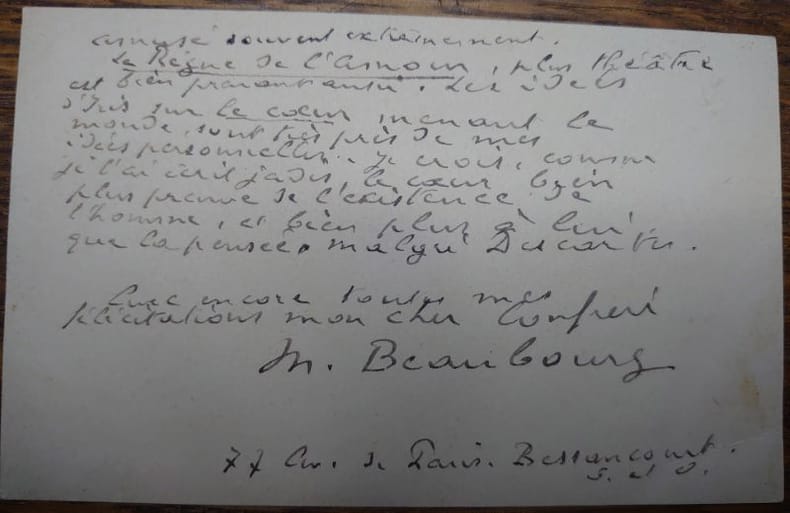 amusé souvent extrêmement.
Le Règne de l'Amour, plus théâtre
est bien prenant aussi. Les idées
d'Iris sur le cœur menant le
monde, sont très près de mes
idées personnelles. Je crois, comme
je l'ai écrit jadis, le cœur bien
plus preuve de l'existence de
l'homme, et bien plus à lui
que la pensée, malgré Descartes.
Avec encore toutes mes
félicitations mon cher Confrère
M. Beaubourg
77 Av. de Paris. Bessancourt.
S. et O.